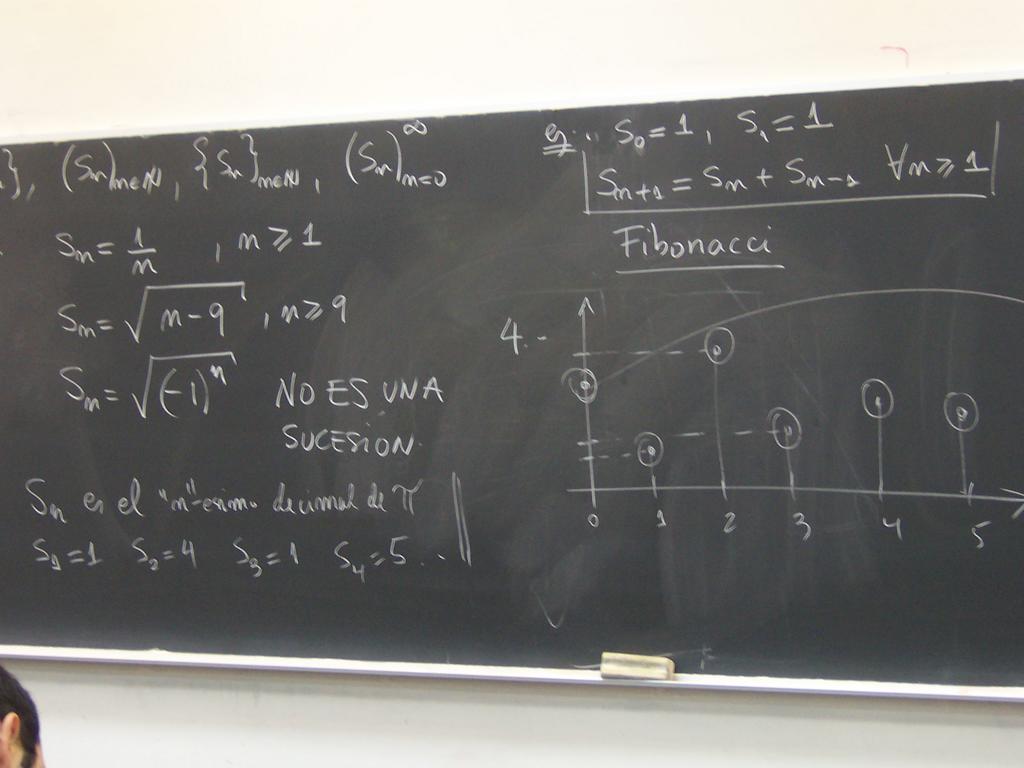 }, (Sₙ)ₙ∈ℕ, {Sₙ}ₙ∈ℕ, (Sₙ)ₙ₌₀^∞
Sₙ = 1/n , n ≥ 1
Sₙ = √(n-9) , n ≥ 9
Sₙ = √((-1)ⁿ) NO ES UNA
SUCESION.
Sₙ es el "n"-esimo decimal de π
S₁=1 S₂=4 S₃=1 S₄=5 ...
ej: S₀=1, S₁=1
Sₙ₊₁ = Sₙ + Sₙ₋₁ ∀n ≥ 1
Fibonacci
4
0 1 2 3 4 5